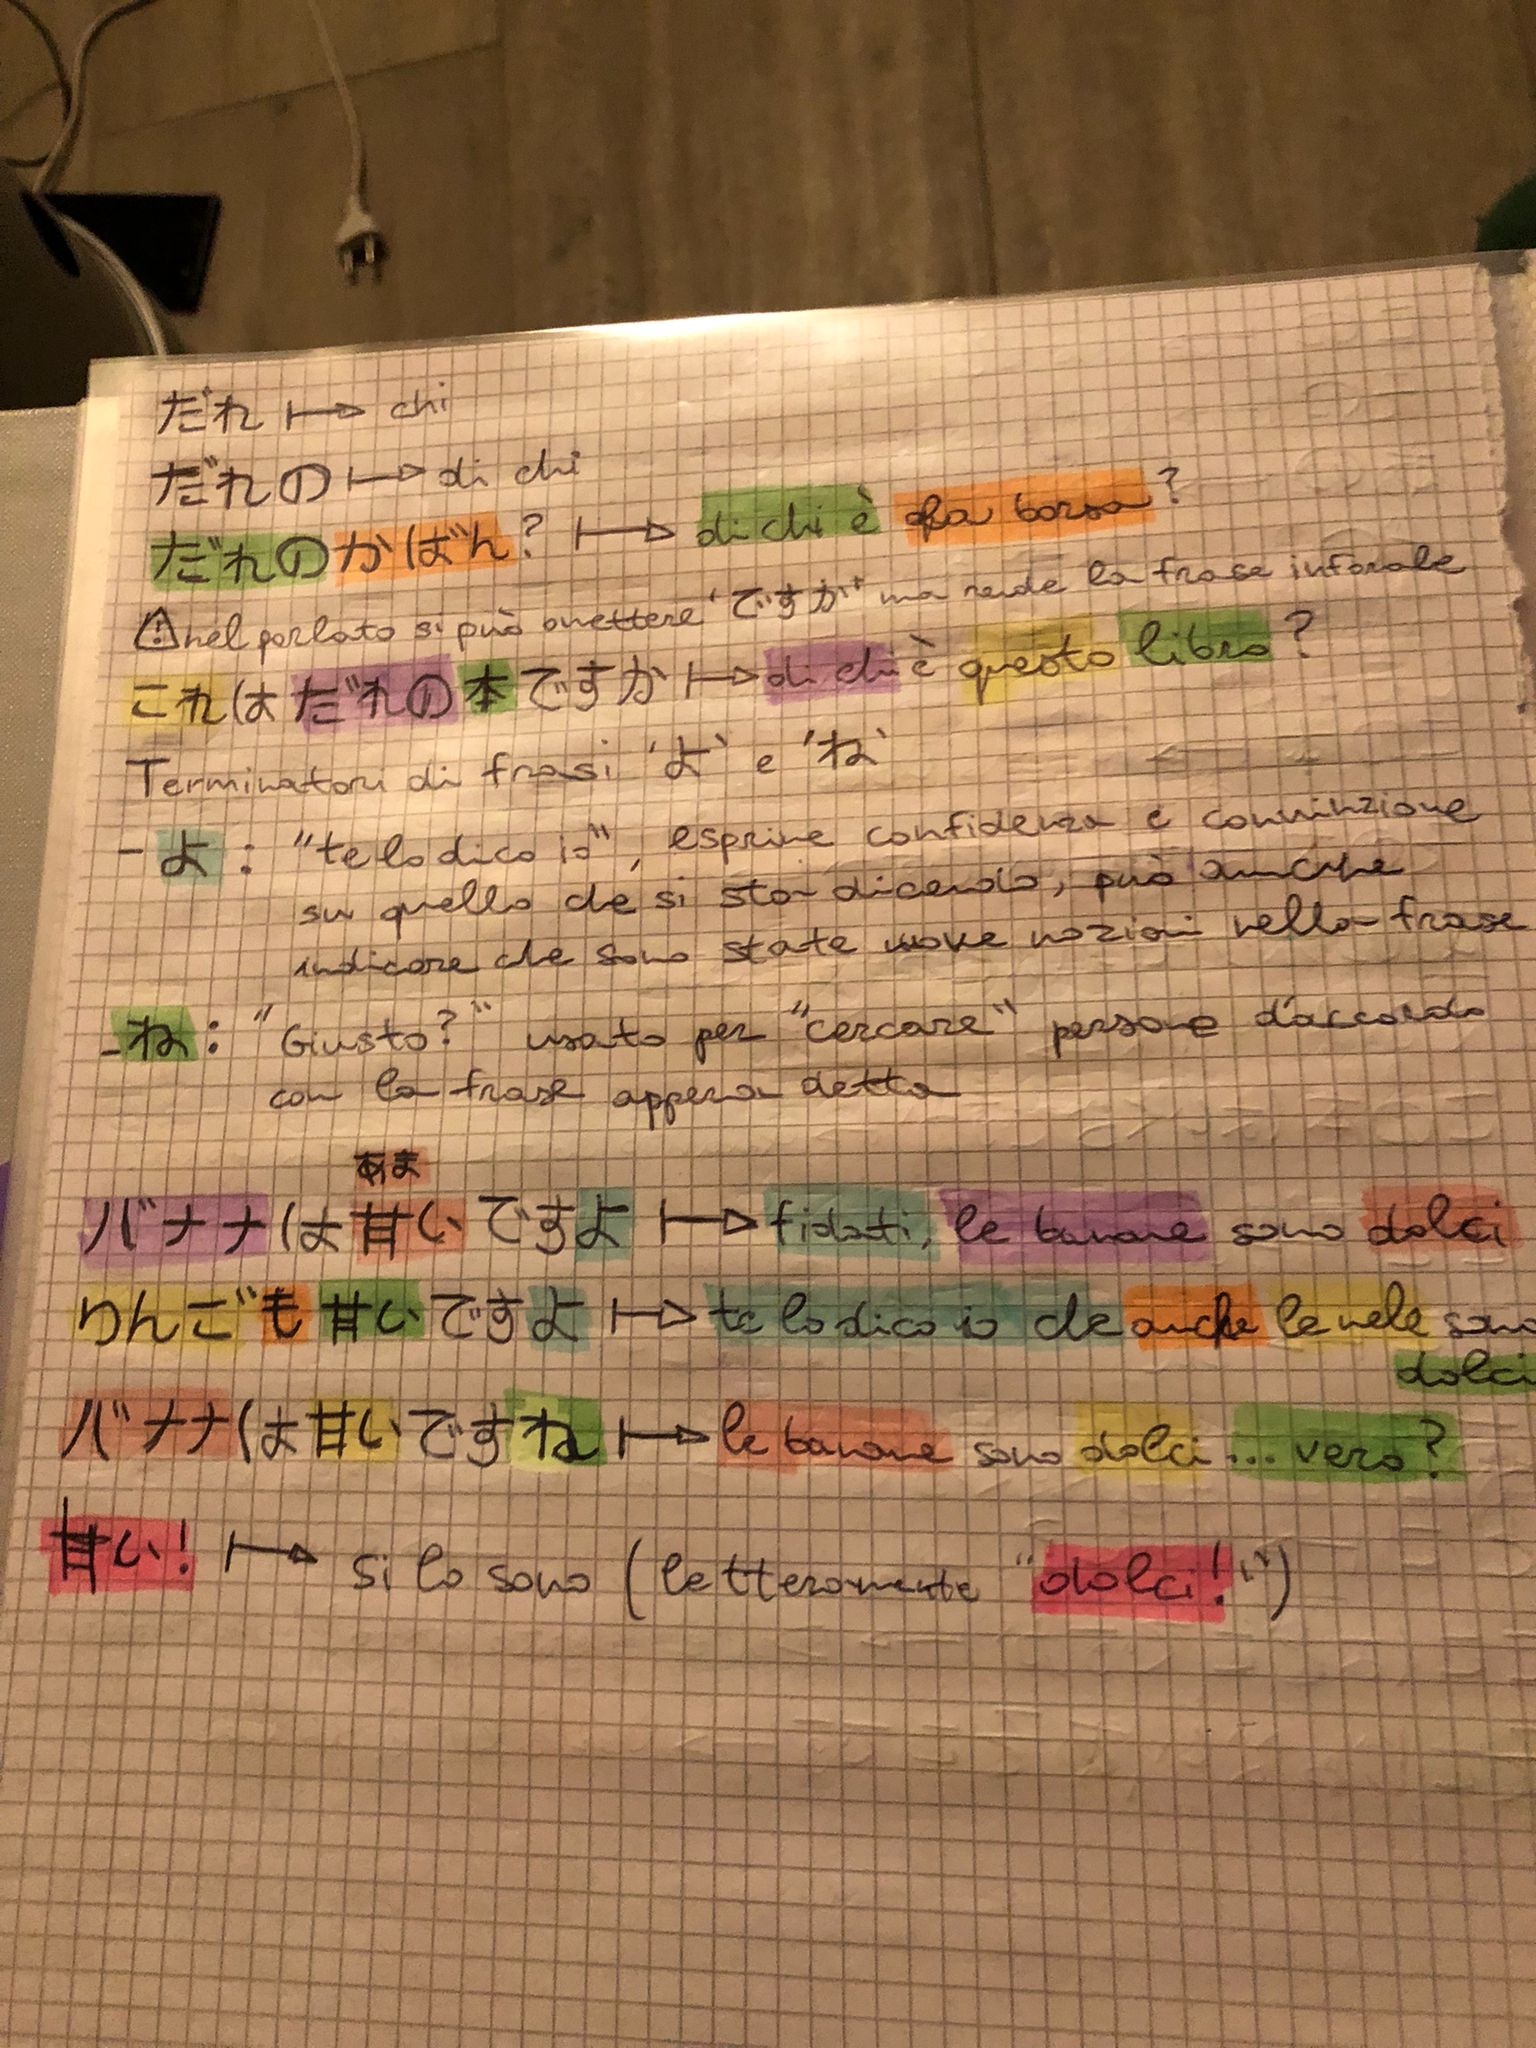 だれ ↦ chi
だれの ↦ di chi
だれのかばん? ↦ di chi è la borsa?
⚠ nel parlato si può omettere "ですか" ma rende la frase informale
これはだれの本ですか ↦ di chi è questo libro?
Terminatori di frasi 'よ' e 'ね'
- よ : "te lo dico io", esprime confidenza e convinzione
su quello che si sta dicendo, può anche
indicare che sono state nuove nozioni nella frase
- ね : "Giusto?" usato per "cercare" persone d'accordo
con la frase appena detta
あま
バナナは甘いですよ ↦ fidati, le banane sono dolci
りんごも甘いですよ ↦ te lo dico io che anche le mele sono
dolci
バナナは甘いですね ↦ le banane sono dolci... vero?
甘い! ↦ si lo sono (letteramente "dolci!")